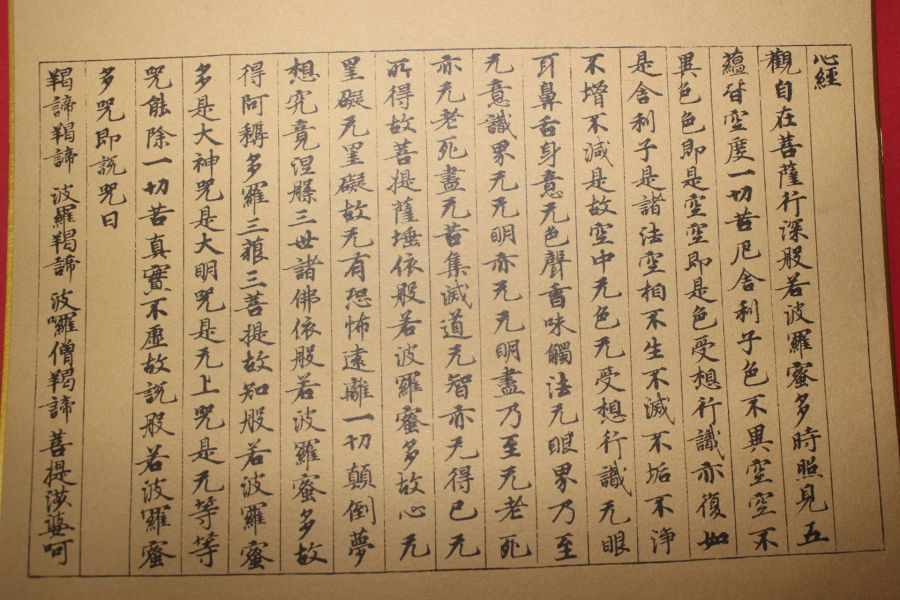 心經
觀自在菩薩行深般若波羅蜜多時照見五
蘊皆空度一切苦厄舍利子色不異空空不
異色色即是空空即是色受想行識亦復如
是舍利子是諸法空相不生不滅不垢不淨
不增不減是故空中无色无受想行識无眼
耳鼻舌身意无色聲香味觸法无眼界乃至
无意識界无无明亦无无明盡乃至无老死
亦无老死盡无苦集滅道无智亦无得已无
所得故菩提薩埵依般若波羅蜜多故心无
罣礙无罣礙故无有恐怖遠離一切顛倒夢
想究竟涅槃三世諸佛依般若波羅蜜多故
得阿耨多羅三藐三菩提故知般若波羅蜜
多是大神咒是大明咒是无上咒是无等等
咒能除一切苦真實不虛故說般若波羅蜜
多咒即說咒曰
羯諦羯諦 波羅羯諦 波囉僧羯諦 菩提薩婆呵